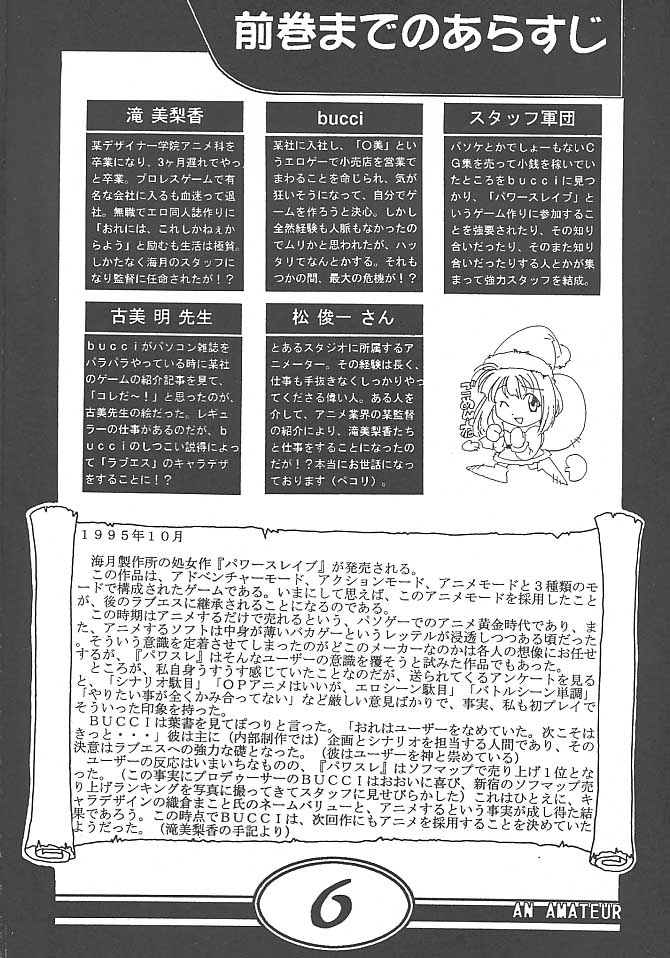 前巻までのあらすじ
滝 美梨香
某デザイナー学院アニメ科を
卒業になり、3ヶ月遅れでやっ
と卒業。プロレスゲームで有
名な会社に入るも血迷って退
社。無職でエロ同人誌作りに
「おれには、これしかねぇか
らよう」と励むも生活は極貧。
しかたなく海月のスタッフに
なり監督に任命されたが！？
bucci
某社に入社し、「〇美」とい
うエロゲーで小売店を営業で
まわることを命じられ、気が
狂いそうになって、自分でゲ
ームを作ろうと決心。しかし
全然経験も人脈もなかったの
でムリかと思われたが、ハッ
タリでなんとかする。それも
つかの間、最大の危機が！？
スタッフ軍団
パソケとかでしょーもないC
G集を売って小銭を稼いでい
たところをbucciに見つ
かり、「パワースレイブ」と
いうゲーム作りに参加するこ
とを強要されたり、その知り
合いだったり、そのまた知り
合いだったりする人とかが集
まって強力スタッフを結成。
古美 明 先生
bucciがパソコン雑誌を
パラパラやっている時に某社
のゲームの紹介記事を見て、
「コレだ〜！」と思ったのが、
古美先生の絵だった。レギュ
ラーの仕事があるのだが、b
ucciのしつこい説得によっ
て「ラブエス」のキャラデザ
をすることに！？
松 俊一 さん
とあるスタジオに所属するア
ニメーター。その経験は長く、
仕事も手抜きなくしっかりやっ
てくださる偉い人。ある人を
介して、アニメ業界の某監督
の紹介により、滝美梨香たち
と仕事をすることになったの
だが！？本当にお世話になっ
ております（ペコリ）。
1995年10月
海月製作所の処女作『パワースレイブ』が発売される。
この作品は、アドベンチャーモード、アクションモード、アニメモードと３種類のモ
ードで構成されたゲームである。いまにして思えば、このアニメモードを採用したこと
が、後のラブエスに継承されることになるのである。
この時期はアニメするだけで売れるという、パソゲーでのアニメ黄金時代であり、ま
た、アニメするソフトは中身が薄いバカゲーというレッテルが浸透しつつある頃だった
。そういう意識を定着させてしまったのがどこのメーカーなのかは各人の想像にお任せ
するが、『パワスレ』はそんなユーザーの意識を覆そうと試みた作品でもあった。
ところが、私自身うすうす感じていたことなのだが、送られてくるアンケートを見る
と、「シナリオ駄目」「OPアニメはいいが、エロシーン駄目」「バトルシーン単調」
「やりたい事が全くかみ合ってない」など厳しい意見ばかりで、事実、私も初プレイで
そういった印象を持った。
BUCCIは葉書を見てぽつりと言った。「おれはユーザーをなめていた。次こそは
きっと・・・」彼は主に（内部制作では）企画とシナリオを担当する人間であり、その
決意はラブエスへの強力な礎となった。（彼はユーザーを神と崇めている）
ユーザーの反応はいまいちなものの、『パワスレ』はソフマップで売り上げ１位とな
った。（この事実にプロデゥーサーのBUCCIはおおいに喜び、新宿のソフマップ売
り上げランキングを写真に撮ってきてスタッフに見せびらかした）これはひとえに、キ
ャラデザインの織倉まこと氏のネームバリューと、アニメするという事実が成し得た結
果であろう。この時点でBUCCIは、次回作にもアニメを採用することを決めていた
ようだった。（滝美梨香の手記より）
6
AN AMATEUR